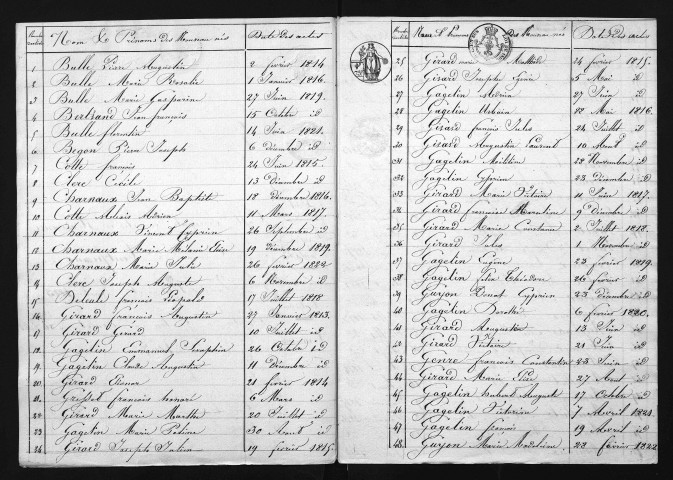 Nom & Prénoms des Nouveau nés Date des actes
1 Bulle Pierre Augustin 2 février 1814
2 Bulle Marie Rosalie 1 Janvier 1816.
3 Bulle Marie Gasparine 27 Juin 1819.
4 Bertrand Jean françois 15 Octobre id
5 Bulle florentin 14 Juin 1821.
6 Begon Pierre Joseph 6 Décembre id
7 Colle françois 24 Juin 1815.
8 Clerc Cécile 13 Décembre id
9 Charnaux Jean Baptiste 18 Décembre 1816.
10 Colle Adrien 11 Mars 1817.
11 Charnaux Vincent Cyprien 26 Septembre id
12 Charnaux Marie Mélanie 19 Décembre 1819.
13 Charnaux Marie Julie 26 février 1822
14 Clerc Joseph Auguste 6 Novembre id
15 françois Léopold 17 Juillet 1818
16 Girard françois Augustin 27 Janvier 1813.
17 Girard Gérard 10 Juillet id
18 Gagelin Emmanuel Séraphin 26 Octobre id
19 Gagelin Claude Augustin 11 Décembre id
20 Girard Eléonor 21 février 1814
21 françois honoré 6 Mars id
22 Girard Marie Marthe 20 Juillet id
23 Gagelin Marie 30 Aout id
24 Girard Joseph Julien 19 février 1815.
Noms & Prénoms des Nouveau nés Date des actes
25 Girard Marie Mathilde 24 février 1815.
26 Girard Joseph 5 Mai id
27 Gagelin 27 Juin id
28 Gagelin Urbain 12 Mai 1816.
29 Girard françois Jules 24 Juillet id
30 Girard Augustin Laurent 10 Aout id
31 Gagelin 22 Novembre id
32 Gagelin Cyprien 23 Décembre id
33 Girard Marie Victoire 11 Juin 1817.
34 Girard françoise 9 Décembre id
35 Girard Marie Constance 2 Juillet 1818.
36 Girard Jules 1 Novembre id
37 Gagelin Eugène 23 février 1819.
38 Gagelin Théodore 26 février id
39 Donat Cyprien 23 Décembre id
40 Gagelin 6 février 1820.
41 Girard Augustin 13 Juin id
42 Girard Victoire 21 Juin id
43 Genre françois Constantin 23 Juin id
44 Girard Marie 27 Aout id
45 Gagelin hubert Auguste 17 Octobre id
46 Gagelin Victorine 7 Avril 1821.
47 Gagelin françois 19 Avril id
48 Marie Madeleine 23 février 1822